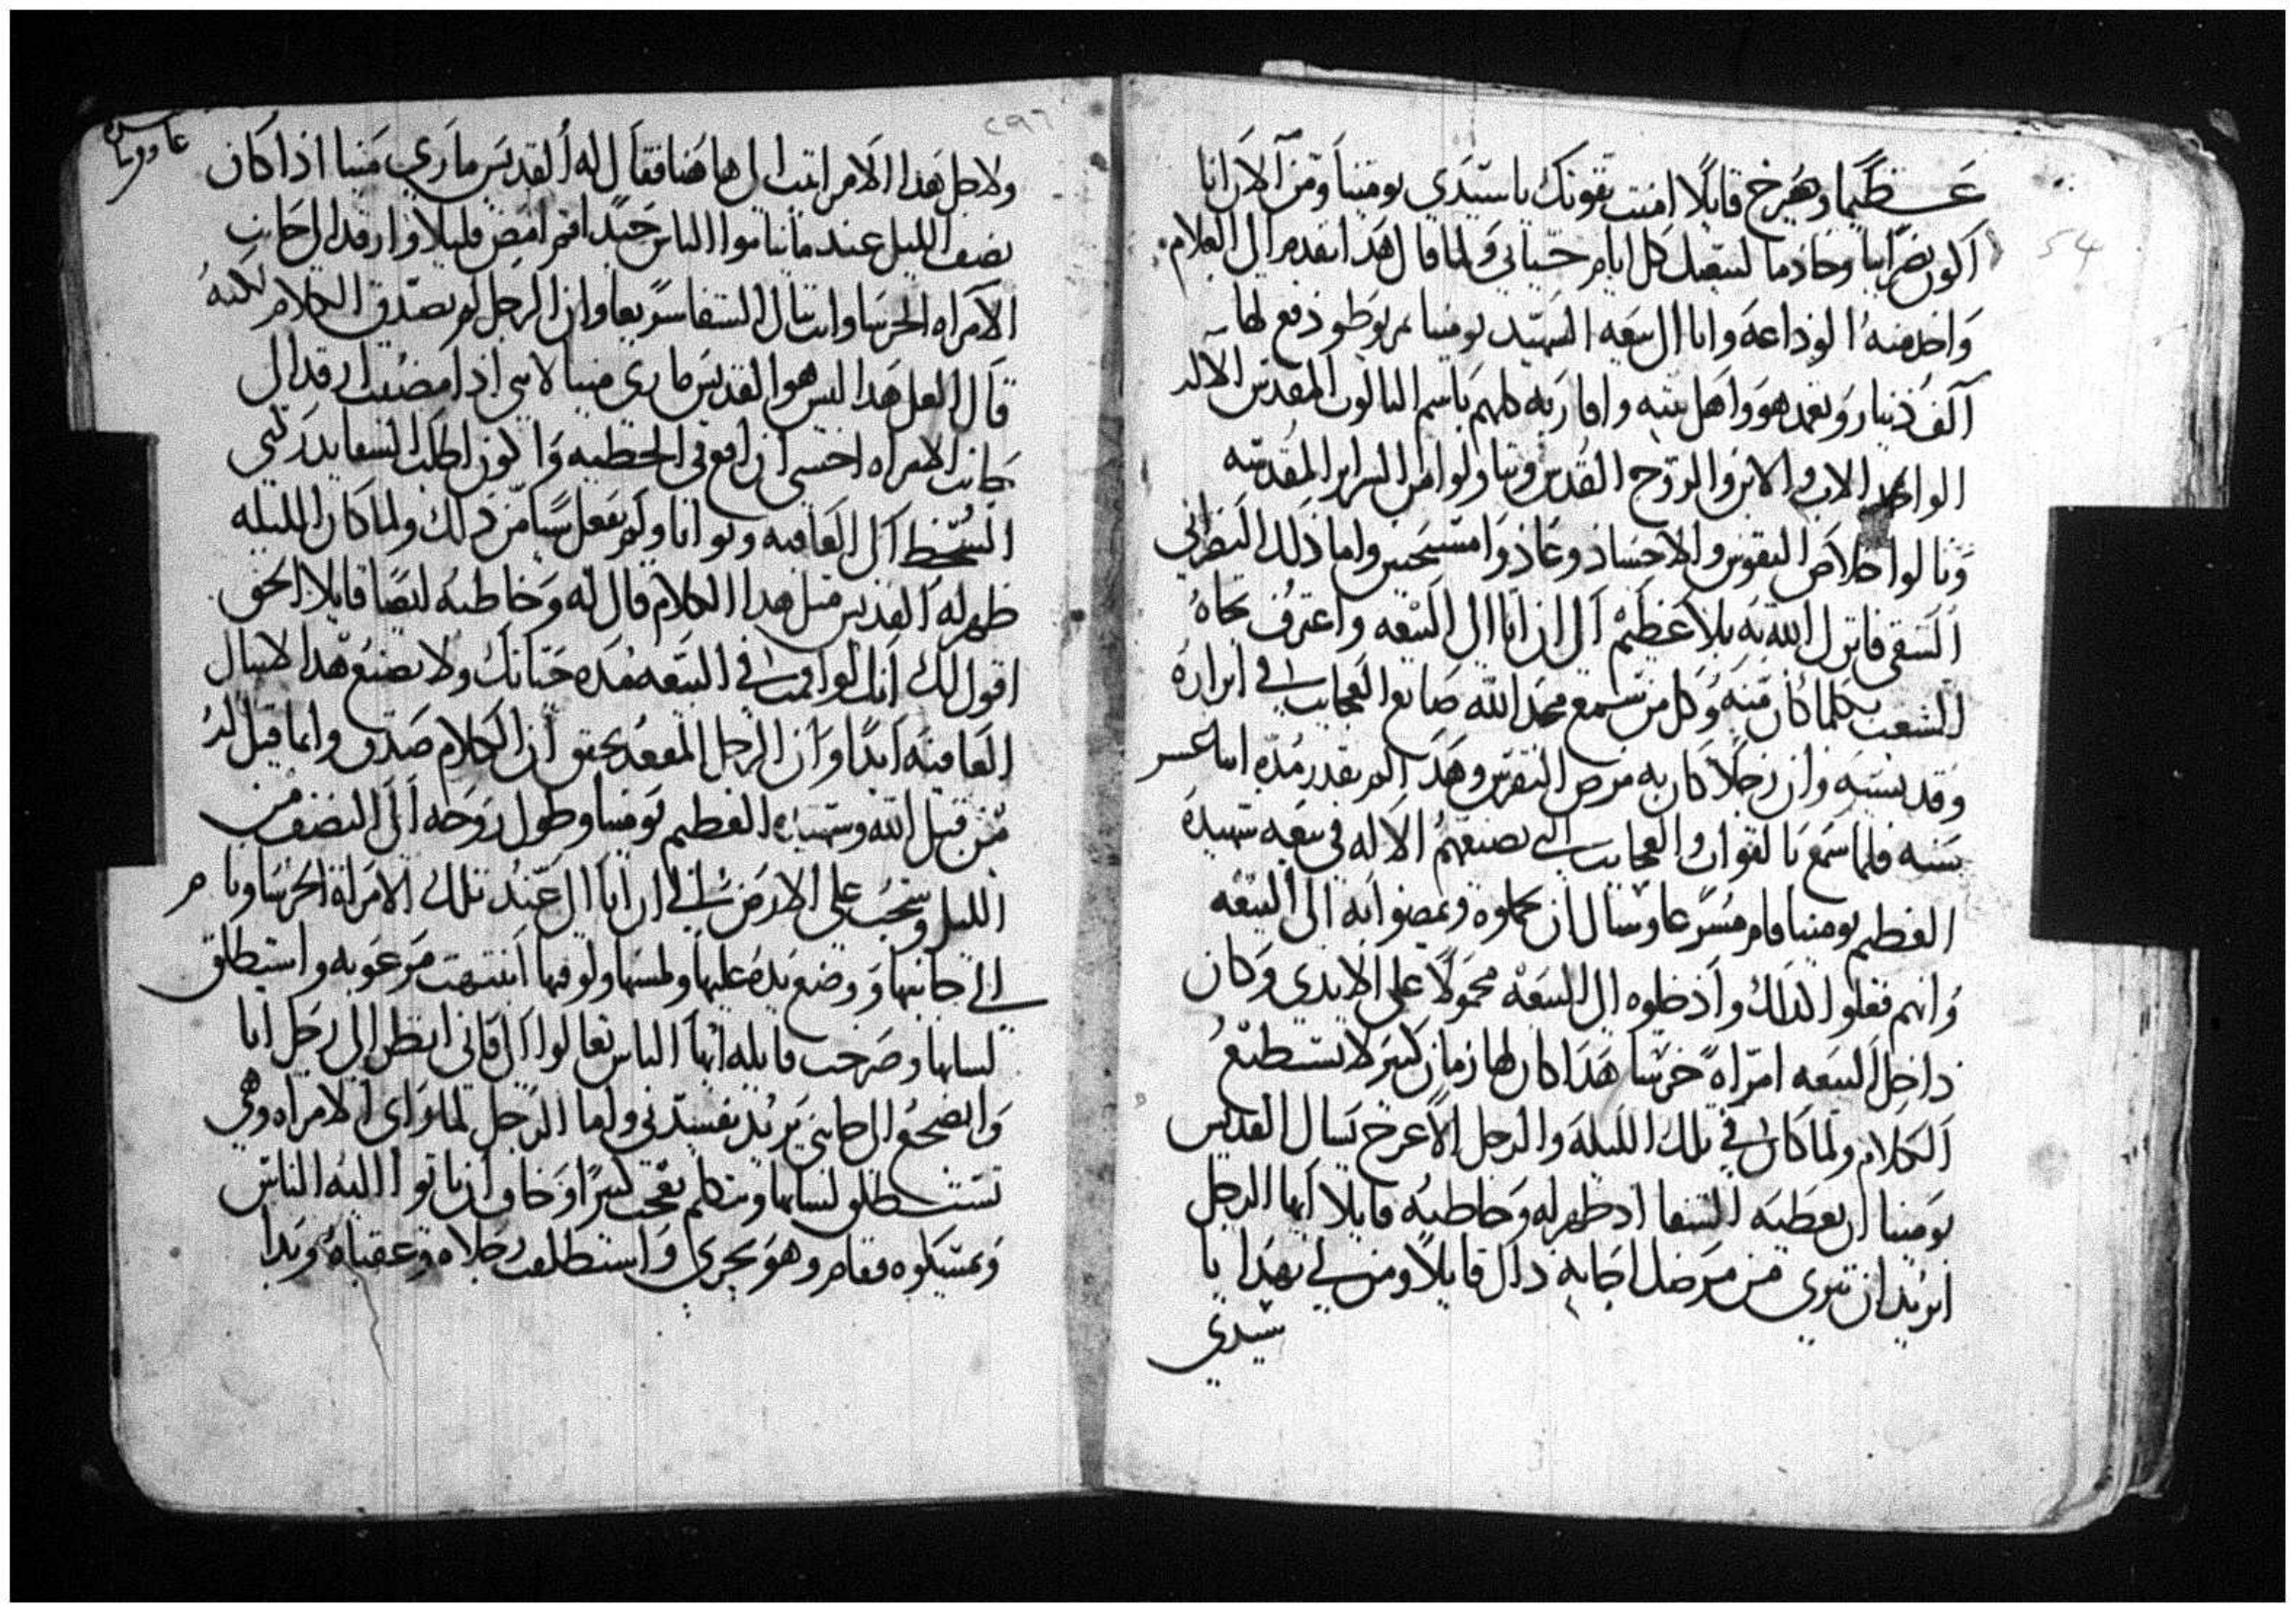 عظيما وصرخ قايلا امنت بقوتك يا سيدي بومينا ومن الان انا
اكون نصرانيا وخادما لبيعتك كل ايام حياتي ولما قال هذا تقدم الى الغلام
واخد منه الوداعه واتا الى البيعه الشهيد بومينا مريوط ودفع لها
الف دينار وتعمد هو واهل بيته واقاربه كلهم باسم التالوت المقدس الاله
الواحد الاب والابن والروح القدس وتناولوا من السراير المقدسه
ونالوا خلاص النفوس والاجساد وعادوا مسيحيين واما ذلك النصراني
الشقي فانزل الله به بلا عظيم الى ان اتا الى البيعه واعترف تجاه
الشعب بكلما كان منه وكل من سمع مجد الله صانع العجايب في ابراره
وقديسيه وان رجلا كان به مرض النقرس وهدا لم يقدر مده اتنا عشر
سنه فلما سمع بالقوات والعجايب التي يصنعهم الاله في بيعه شهيده
العظيم بومينا قام مسرعا وسال ان يحملوه ويمضوا به الى البيعه
وانهم فعلوا لدلك وادخلوه الى البيعه محمولا على الايدي وكان
داخل البيعه امراه خرسا هدا كان لها زمان كبير لا تستطيع
الكلام ولما كان في تلك الليله والرجل الاعرج يسال القديس
بومينا ان يعطيه الشفا اد ظهر له وخاطبه قايلا ايها الرجل
اتريد ان تبرى من مرضك اجابه داك قايلا ومن لي بهدا يا
سيدي
٥٤
٢٩٦
ولاجل هدا الامر اتيت الى هاهنا فقال له القديس ماري مينا ادا كان
نصف الليل عند ما يناموا الناس جيدا قم امض قليلا وارقد الى جانب
الامراه الخرسا وانت تنال الشفا سريعا وان الرجل لم يصدق الكلام لكنه
قال لعل هدا ليس هو القديس ماري مينا لانني ادا مضيت ارقد الى
جانب الامراه اخشى ان اقع في الخطيه واكون اطلب الشفا يدركني
السخط الى العاقبه وتوانا ولم يفعل شيا من دلك ولما كان الليله
ظهر له القديس مثل هدا الكلام قال له وخاطبه ايضا قايلا الحق
اقول لك انك لو اقمت في البيعه مده حياتك ولا تصنع هدا لا تنال
العافيه ابدا وان الرجل المقعد تحقق ان الكلام صدق وانما قيل له
من قبل الله وشهيده العظيم بومينا وطول روحه الى النصف من
الليل وسحب على الارض الى ان اتا الى عند تلك الامراه الخرسا ونام
الى جانبها ووضع يده عليها ولمسها ولوقتها انتبهت مرعوبه واستطلق
لسانها وصرخت قايله ايها الناس تعالوا الى فاني انظر الى رجل اتا
وانضجع الى جانبي يريد يفسدني واما الرجل لما راى الامراه وهي
تستطلق لسانها وتتكلم تعجب كثيرا وخاف ان ياتوا اليه الناس
ويمسكوه فقام وهو يجري واستطلقت رجلاه وعقباه وبدا